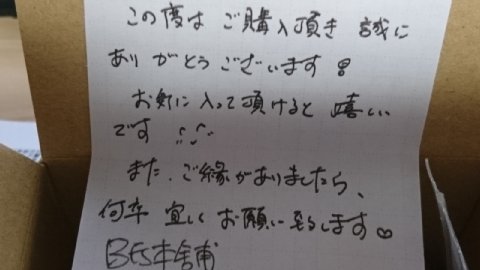 この度は ご購入頂き 誠に
ありがとうございます!
お気に入って頂けると 嬉しい
です
また、ご縁がありましたら、
何卒 宜しくお願い致します♡
BES本舗